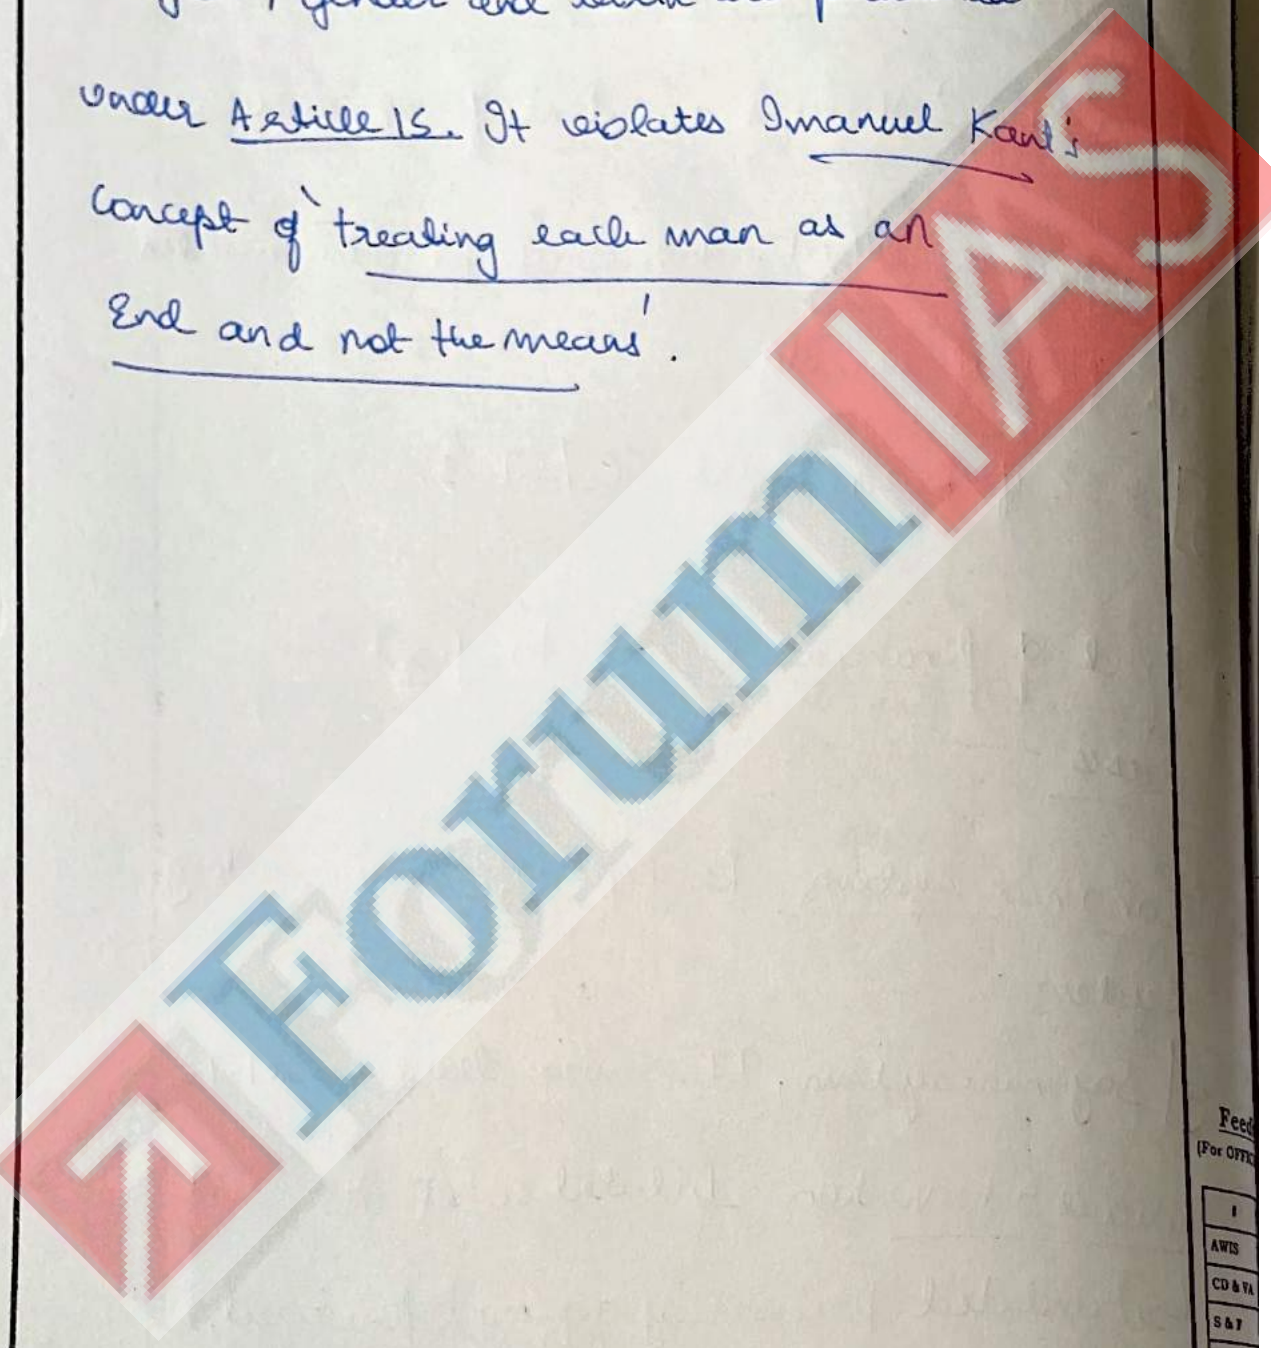 gender and
under Article 15. It violates Imanuel Kant's
Concept of 'treating each man as an
End and not the means'.
ForumIAS
Feed
(For OFFI
AWIS
CD & VA
S & F